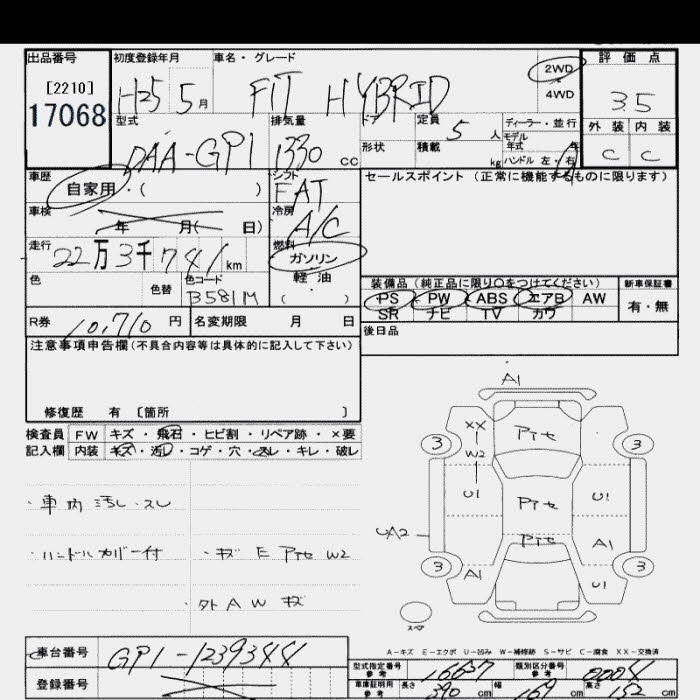 出品番号 初度登録年月 車名・グレード 評価点
[2210] 17068 H25 5月 FIT HYBRID 2WD 4WD 3.5
型式 排気量 ドア 定員 5 人 ディーラー・並行 外装 内装
DAA-GP1 1330 cc 形状 積載 kg モデル年式 ハンドル 左・右 C C
車歴 シフト セールスポイント (正常に機能するものに限ります)
自家用・( ) FAT
車検 年 月( 日) 冷房 A/C
走行 22万3千741km 燃料 ガソリン 軽・油 ( )
色 色替 色コード B581M
装備品 (純正品に限り○をつけてください) 新車保証書
PS PW ABS エアB AW 有・無
SR ナビ TV カワ
R券 10,710 円 名変期限 月 日 後日品
注意事項申告欄 (不具合内容等は具体的に記入して下さい)
修復歴 有 〔箇所 〕
検査員 FW キズ・飛石・ヒビ割・リペア跡・×要
記入欄 内装 キズ・汚レ・コゲ・穴・スレ・キレ・破レ
・車内汚レ・スレ
・ハンドルカバー付 ・キズ E Pイセ W2
・外AWキズ
A1
XX Pイセ
3 3
W2
U1 Pイセ U1
UA2 Pイセ A1
3 3
A1 U1
スペア
A-キズ E-エクボ U-凹み W-補修跡 S-サビ C-腐食 XX-交換済
車台番号 GP1-1239344
型式指定番号 参考 16637 類別区分番号 参考 0004
登録番号
車庫証明用 参考 長さ 390 cm 幅 169 cm 高さ 152 cm